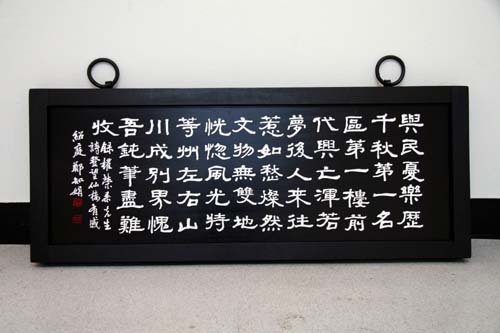 與民憂樂歷
千秋第一名
區第一樓前
代興亡渾若
夢後人來往
惹如愁燦然
文物無雙地
恍惚風光特
等州左右山
川成別界愧
吾鈍筆盡難
收
錄權榮泰先生
詩登望仙樓有感
紹庭 鄭